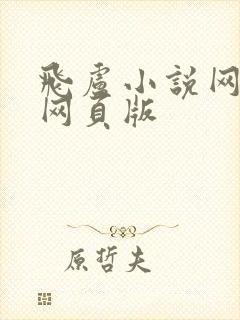 飛盧小説网
网頁版
原哲夫